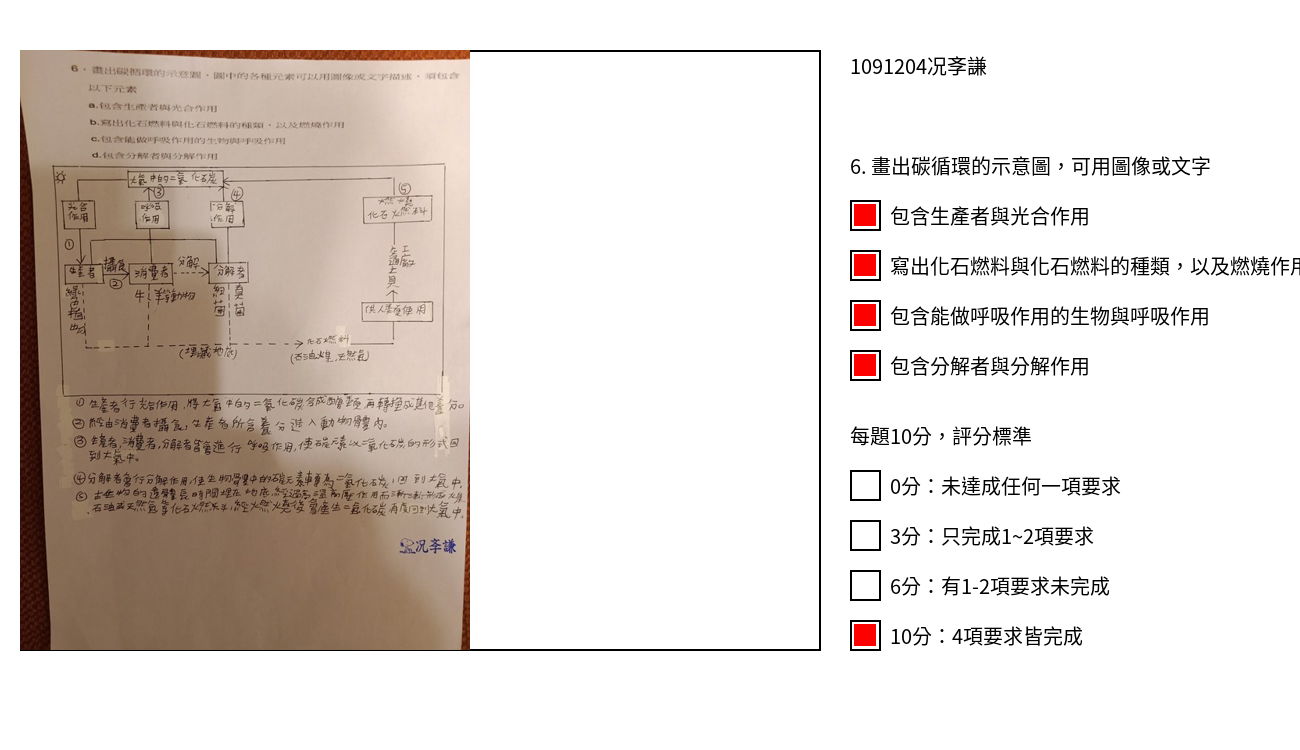 6．畫出碳循環的示意圖，圖中的各種元素可以用圖像或文字描述，須包含
以下元素
a.包含生產者與光合作用
b.寫出化石燃料與化石燃料的種類，以及燃燒作用
c.包含能做呼吸作用的生物與呼吸作用
d.包含分解者與分解作用
大氣中的二氧化碳
③
④
⑤
光合
作用
呼吸
作用
分解
作用
燃燒
化石燃料
①
生產者
攝食
②
消費者
分解
分解者
工廠
交通工具
綠色植物
牛、羊等動物
細菌
真菌
供人類使用
(埋藏地底)
化石燃料
(石油,煤,天然氣)
①生產者行光合作用,將大氣中的二氧化碳合成醣類,再轉換成其他養分。
②經由消費者攝食,生產者所含養分進入動物體內。
③生產者,消費者,分解者皆會進行呼吸作用,使碳元素以二氧化碳的形式回
到大氣中。
④分解者會行分解作用,使生物體中的碳元素轉為二氧化碳,回到大氣中.
⑤古生物的遺體長時間埋在地底,經過高溫高壓作用而漸漸形成煤.
石油及天然氣等化石燃料,經燃燒後會產生二氧化碳再度回到大氣中.
況李謙
1091204况李謙
6. 畫出碳循環的示意圖，可用圖像或文字
包含生產者與光合作用
寫出化石燃料與化石燃料的種類，以及燃燒作用
包含能做呼吸作用的生物與呼吸作用
包含分解者與分解作用
每題10分，評分標準
0分：未達成任何一項要求
3分：只完成1~2項要求
6分：有1-2項要求未完成
10分：4項要求皆完成